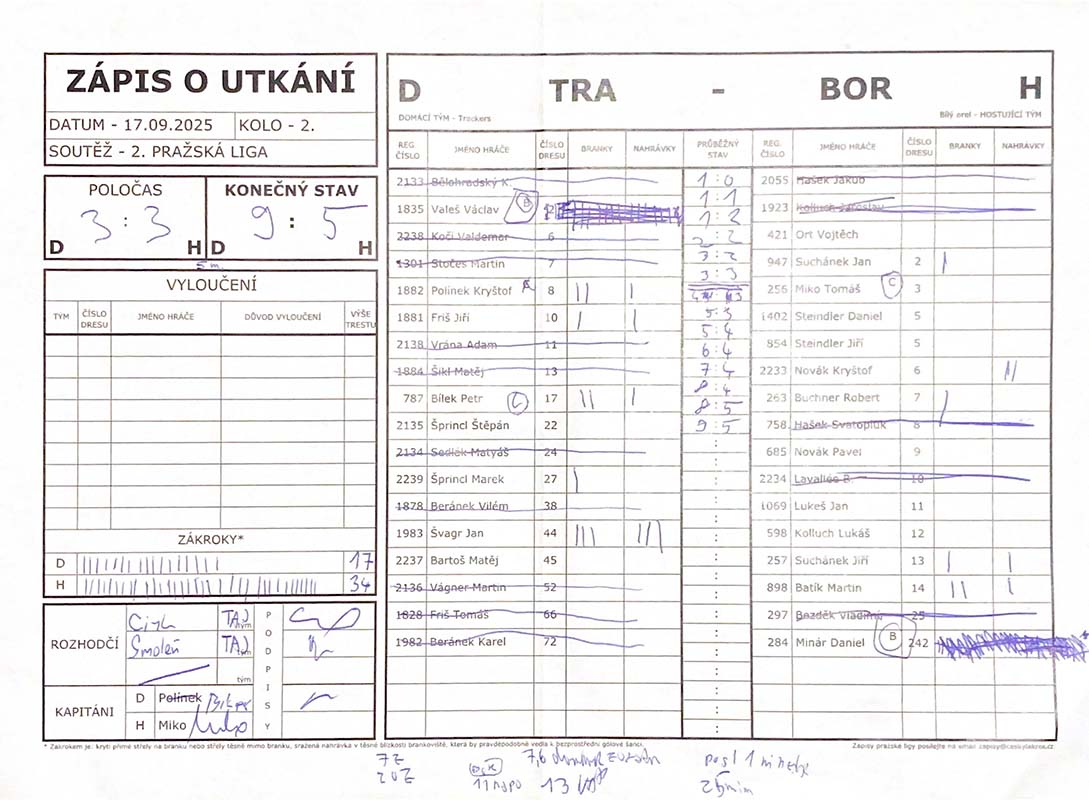 ZÁPIS O UTKÁNÍ
DATUM - 17.09.2025 KOLO - 2.
SOUTĚŽ - 2. PRAŽSKÁ LIGA
POLOČAS KONEČNÝ STAV
3 : 3 9 : 5
D H D H
5 m.
VYLOUČENÍ
TÝM ČÍSLO DRESU JMÉNO HRÁČE DŮVOD VYLOUČENÍ VÝŠE TRESTU
ZÁKROKY*
D 17
H 34
ROZHODČÍ
TAJ tým
Smoleń TAJ tým
tým
PODPISY
KAPITÁNI
D Polínek Bílek
H Miko
D TRA - BOR H
DOMÁCÍ TÝM - Trackers Bílý orel - HOSTUJÍCÍ TÝM
REG. ČÍSLO JMÉNO HRÁČE ČÍSLO DRESU BRANKY NAHRÁVKY PRŮBĚŽNÝ STAV REG. ČÍSLO JMÉNO HRÁČE ČÍSLO DRESU BRANKY NAHRÁVKY
2133 Bělohradský K. 1:0 2055 Hašek Jakub
1835 Valeš Václav B 1:1 1923 Kolluch Jaroslav
1:2
2238 Koči Valdemar 6 2:2 421 Ort Vojtěch
1301 Stočes Martin 7 3:2 947 Suchánek Jan 2 |
3:3
1882 Polínek Kryštof 8 || | 256 Miko Tomáš C 3
1881 Friš Jiří 10 | | 5:3 1402 Steindler Daniel 5
2138 Vrána Adam 11 5:4 854 Steindler Jiří 5
6:4
1884 Šikl Matěj 13 7:4 2233 Novák Kryštof 6 ||
787 Bílek Petr C 17 || | 8:4 263 Buchner Robert 7 |
8:5
2135 Šprincl Štěpán 22 9:5 758 Hašek Svatopluk 8
2134 Sedlák Matyáš 24 : 685 Novák Pavel 9
2239 Šprincl Marek 27 | : 2234 Lavallée B. 10
1878 Beránek Vilém 38 : 1069 Lukeš Jan 11
1983 Švagr Jan 44 ||| ||| : 598 Kolluch Lukáš 12
2237 Bartoš Matěj 45 : 257 Suchánek Jiří 13 | |
2136 Vágner Martin 52 : 898 Batík Martin 14 || |
1828 Friš Tomáš 66 : 297 Bezděk Vladimír 25
1982 Beránek Karel 72 : 284 Minár Daniel B 242
* Zákrokem je: krytí přímé střely na branku nebo střely těsně mimo branku, sražená nahrávka v těsné blízkosti brankoviště, která by pravděpodobně vedla k bezprostřední gólové šanci.
Zápisy pražské ligy posílejte na email zapisy@ceskylakros.cz
7Z
20Z
7,6
13
posl 1 minuta
25 min